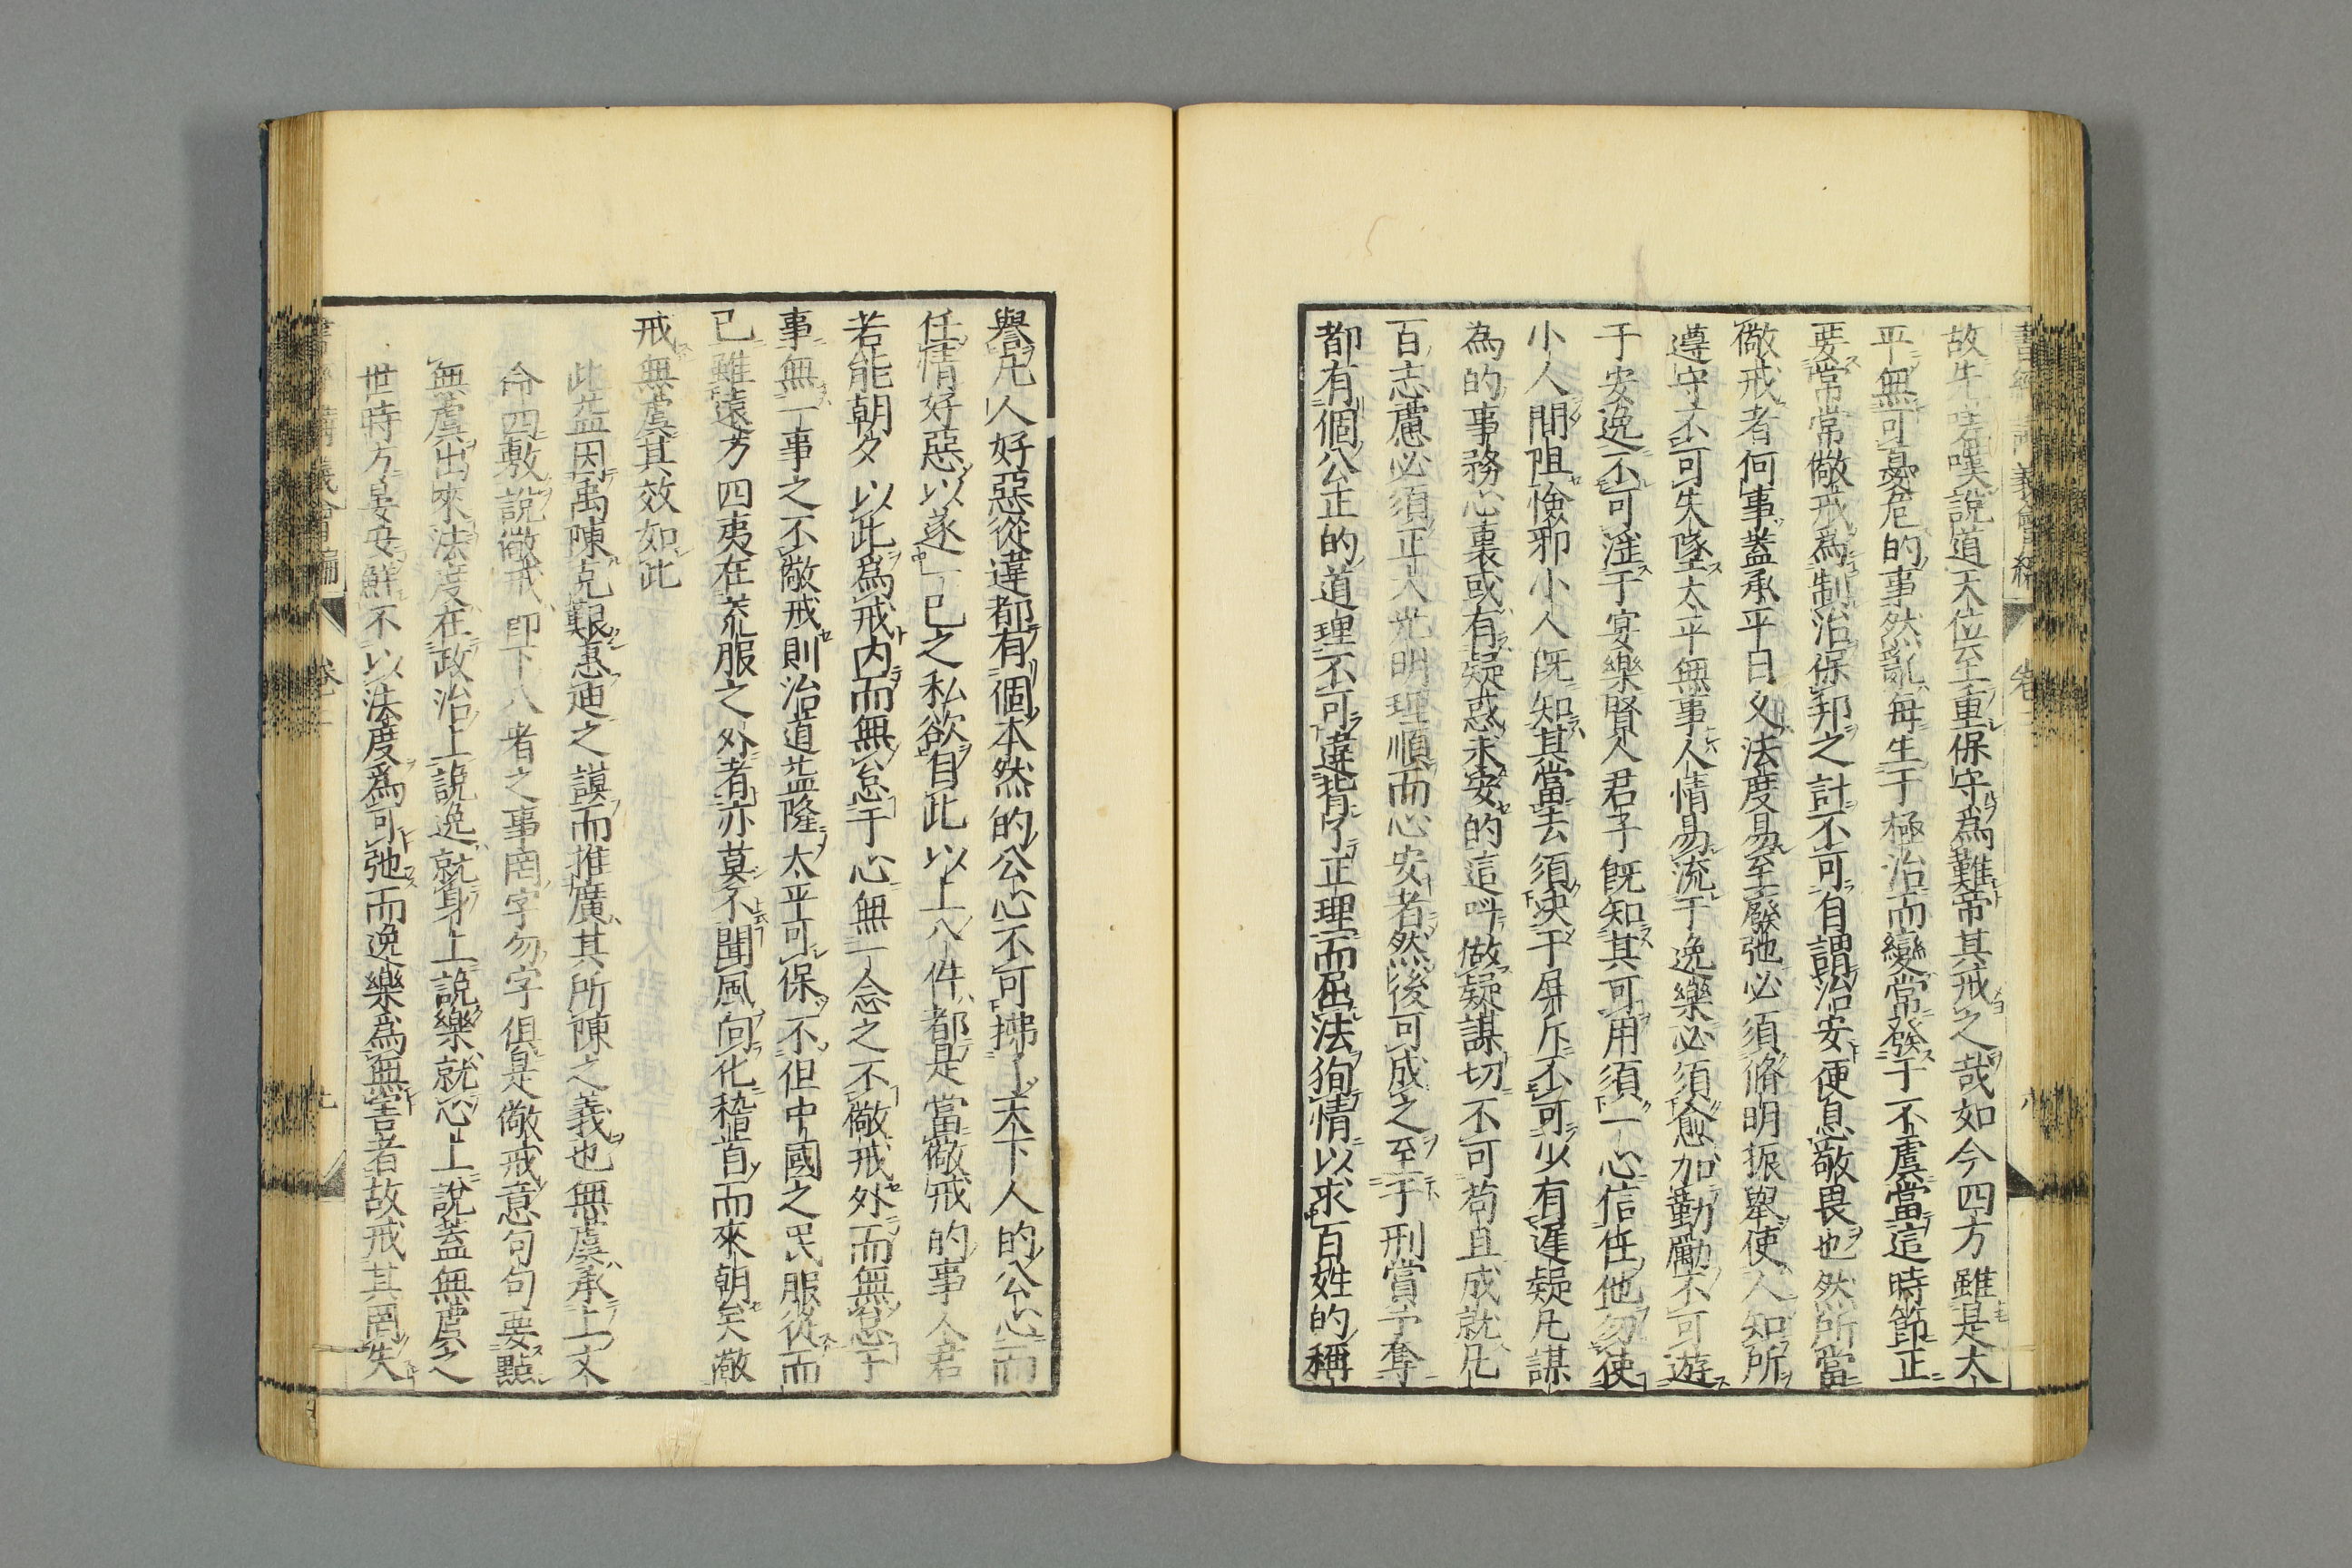 故先嗟嘆說道天位至重保守爲難帝其戒之哉如今四方雖是太
平無可憂危的事然亂每生于極治而變常發于不虞當這時節正
要常常儆戒爲制治保邦之計不可自謂治安便怠敬畏也然所當
儆戒者何事葢承平日久法度易至廢弛必須脩明振舉使人知所
遵守不可失墜太平無事人情易流于逸樂必須愈加勤勵不可遊
于安逸不可淫于宴樂賢人君子旣知其可用須一心信任他勿使
小人間阻憸邪小人旣知其當去須决于屏斥不可少有遲疑凡謀
為的事務心裏或有疑惑未安的這呌做疑謀切不可苟且成就凡
百志慮必須正大光明理順而心安者然後可成之至于刑賞予奪
都有個公正的道理不可違背了正理而屈法狥情以求百姓的稱
譽凡人好惡從違都有個本然的公心不可拂了天下人的公心而
任情好惡以遂一已之私欲自此以上八件都是當儆戒的事人君
若能朝夕以此爲戒内而無怠于心無一念之不儆戒外而無怠于
事無一事之不儆戒則治道益隆太平可保不但中國之民服從而
已雖遠方四夷在荒服之外者亦莫不聞風向化稽首而來朝矣儆
戒無虞其效如此
此益因禹陳克艱惠迪之謨而推廣其所陳之義也無虞承上文
命四敷說儆戒即下八者之事罔字勿字俱是儆戒意句句要點
無虞出來法度在政治上說逸就身上說樂就心上說葢無虞之
世時方晏安鮮不以法度爲可弛而逸樂爲無害者故戒其罔失